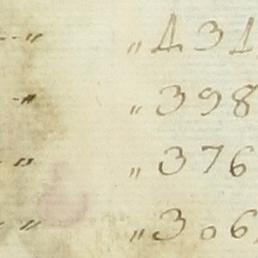 --〃 〃431
-〃 〃398
-〃 〃376
-〃 〃306